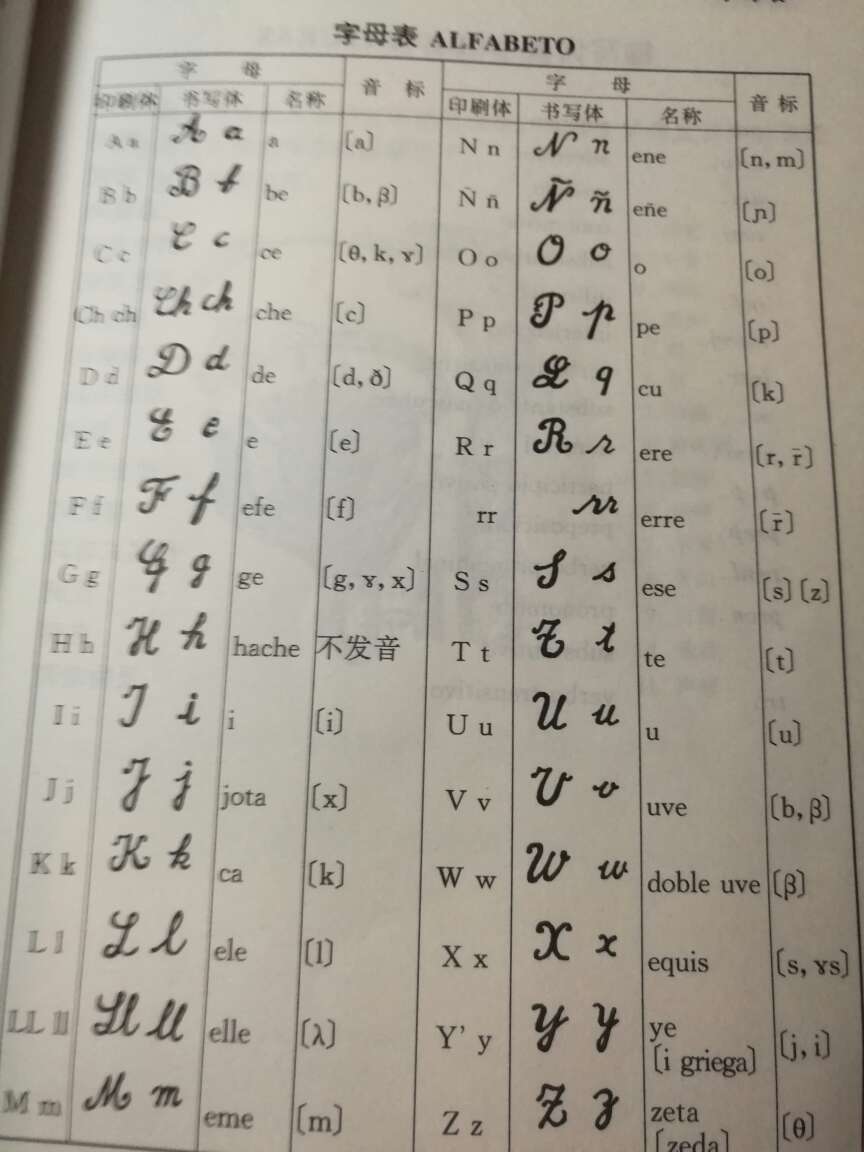 字母表 ALFABETO
字 母 音 标 字 母 音 标
印刷体 书写体 名称 印刷体 书写体 名称
A a A a a [a] N n N n ene [n, m]
B b B b be [b, β] Ñ ñ Ñ ñ eñe [ɲ]
C c C c ce [θ, k, ɤ] O o O o o [o]
Ch ch Ch ch che [c] P p P p pe [p]
D d D d de [d, ð] Q q Q q cu [k]
E e E e e [e] R r R r ere [r, r̄]
F f F f efe [f] rr rr erre [r̄]
G g G g ge [g, ɤ, x] S s S s ese [s] [z]
H h H h hache 不发音 T t T t te [t]
I i I i i [i] U u U u u [u]
J j J j jota [x] V v V v uve [b, β]
K k K k ca [k] W w W w doble uve [β]
L l L l ele [l] X x X x equis [s, ɤs]
LL ll Ll ll elle [λ] Y' y Y y ye [i griega] [j, i]
M m M m eme [m] Z z Z z zeta [zeda] [θ]